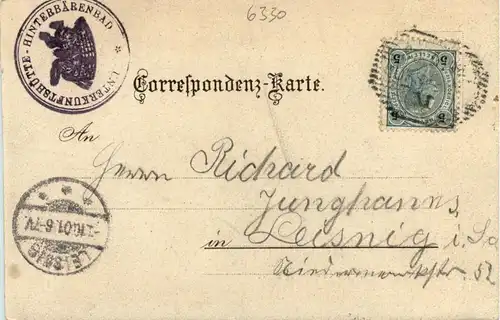 6330
UNTERKUNFTSHÜTTE-HINTERBÄRENBAD *
5 5
5 5
Correspondenz-Karte.
An
Herrn Richard
Junghanns
in Leisnig i. Sa
Niedermarktstr. 52
LEISNIG
.10.01.6-7V.